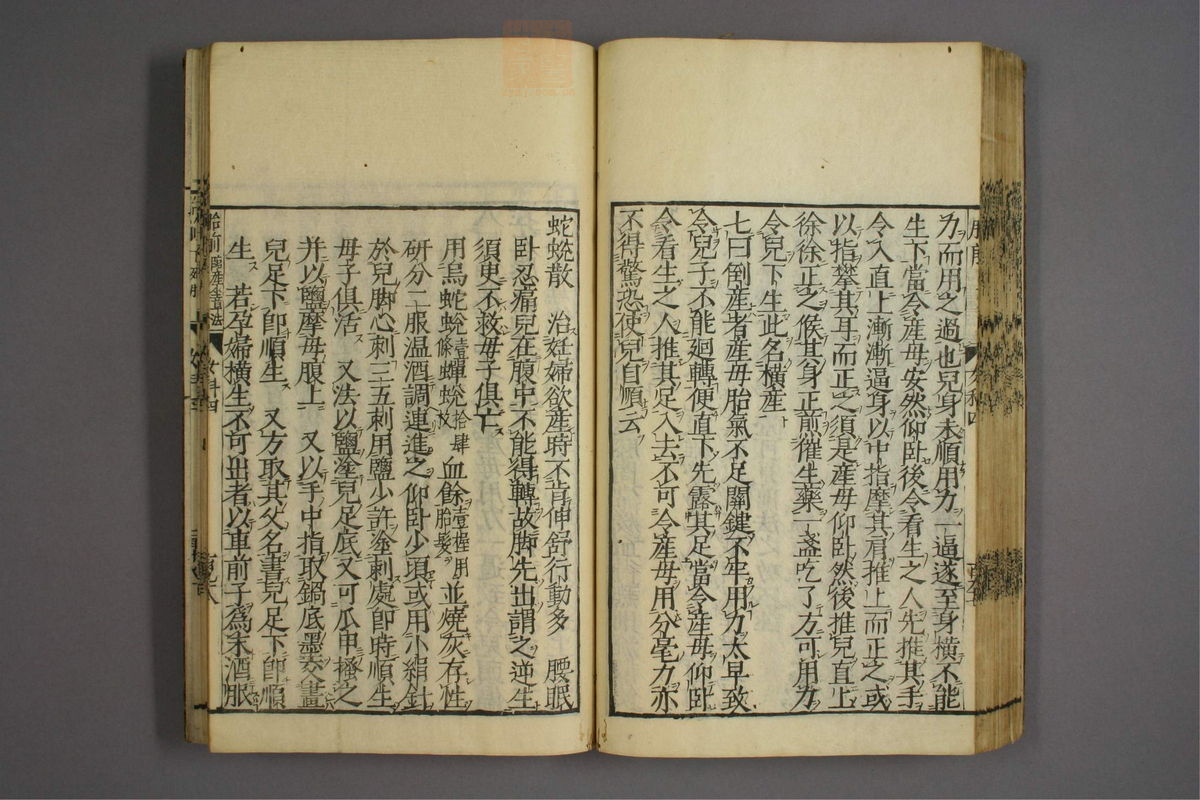 力而用之過也兒身未順用力一逼遂至身橫不能
生下當令産母安然仰臥後令看生之人先推其手
令入直上漸漸逼身以中指摩其肩推上而正之或
以指攀其耳而正之須是産母仰臥然後推兒直上
徐徐正之候其身正煎催生藥一盞吃了方可用力
令兒下生此名橫産
七曰倒産者産母胎氣不足關鍵不牢用力太早致
令兒子不能廻轉便直下先露其足當令産母仰臥
令看生之人推其足入去不可令産母用分毫力亦
不得驚恐使兒自順云
蛇蛻散　治妊婦欲産時不肯伸舒行動多　腰眠
臥忍痛兒在腹中不能得轉故脚先出謂之逆生
須臾不救母子俱亡
用烏蛇蛻壹條蟬蛻拾肆枚血餘壹握用胎髮並燒灰存性
研分二服温酒調連進之仰臥少頃或用小絹針
於兒脚心刺三五刺用鹽少許塗刺處即時順生
母子俱活　又法以鹽塗兒足底又可瓜甲搔之
并以鹽摩母腹上　又以手中指取鍋底墨交畫
兒足下卽順生　又方取其父名書兒足下卽順
生　若孕婦橫生不可出者以車前子爲末酒服
胎前
女科四